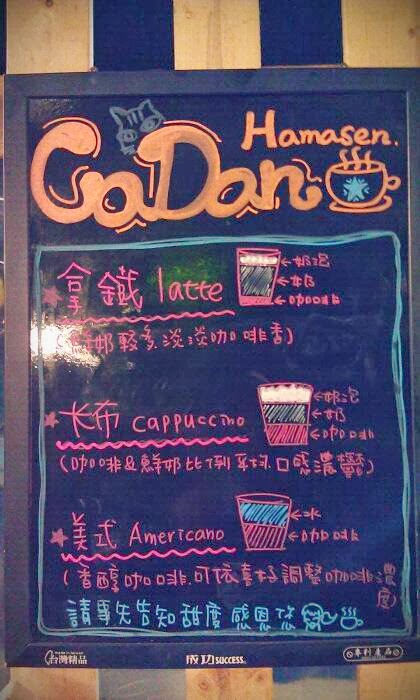 Hamasen.
CaDan
拿鐵 latte
奶泡
奶
咖啡
(鮮奶較多,淡淡咖啡香)
卡布 cappuccino
奶泡
奶
咖啡
(咖啡&鮮奶比例平均.口感濃鬱)
美式 Americano
水
咖啡
(香醇咖啡.可依喜好調整咖啡濃度)
請事先告知甜度 感恩您
台灣精品
成功 SUCCESS.
專利產品